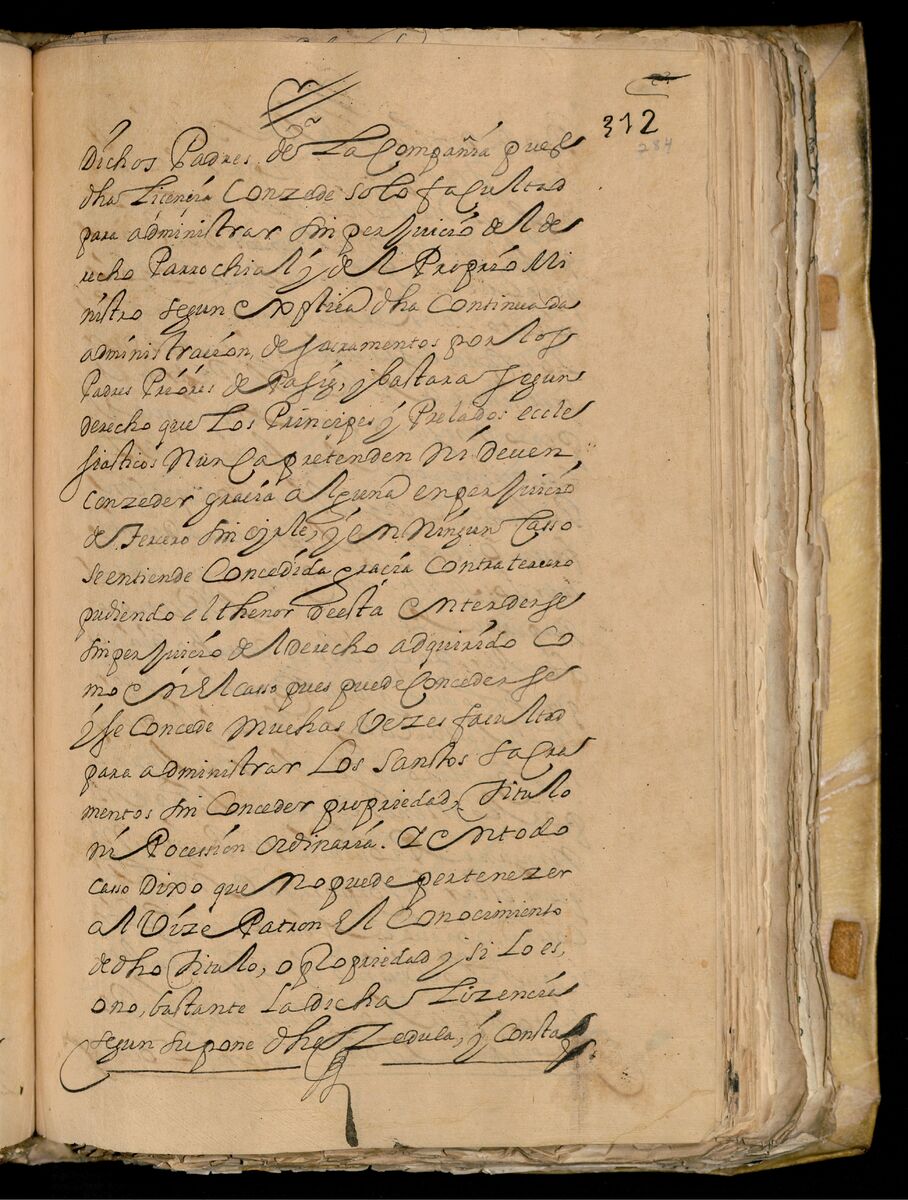 312
284
Dichos Padres de La Compañia pues
dha Licencia Conzede solo facultad
para administrar sin perjuicio del de
recho Parrochial y del Proprio Mi
nistro segun explica dha Continuada
administracion, de sacramentos por los
Padres Priores de Pasig, y bastara segun
derecho que Los Principes y Prelados eccle
siasticos Nunca pretenden Ni deven
Conzeder gracia alguna en perjuicio
de Tercero sin oyrle, y en Ningun Casso
se entiende Concedida gracia Contra tercero
pudiendo el thenor de esta entenderse
sin perjuicio del derecho adquirido Co
mo en El casso pues puede Concederse
y se Concede Muchas Vezes facultad
para administrar Los Santos sacra
mentos sin Conceder propriedad, Titulo
ni Pocession Ordinaria. Y en todo
casso Dixo que No puede pertenezer
al Vize Patron El Conocimiento
de dho Titulo, o Propriedad y si Lo es,
o no, bastante La dicha Lizencia
segun supone dha Zedula, y Consta